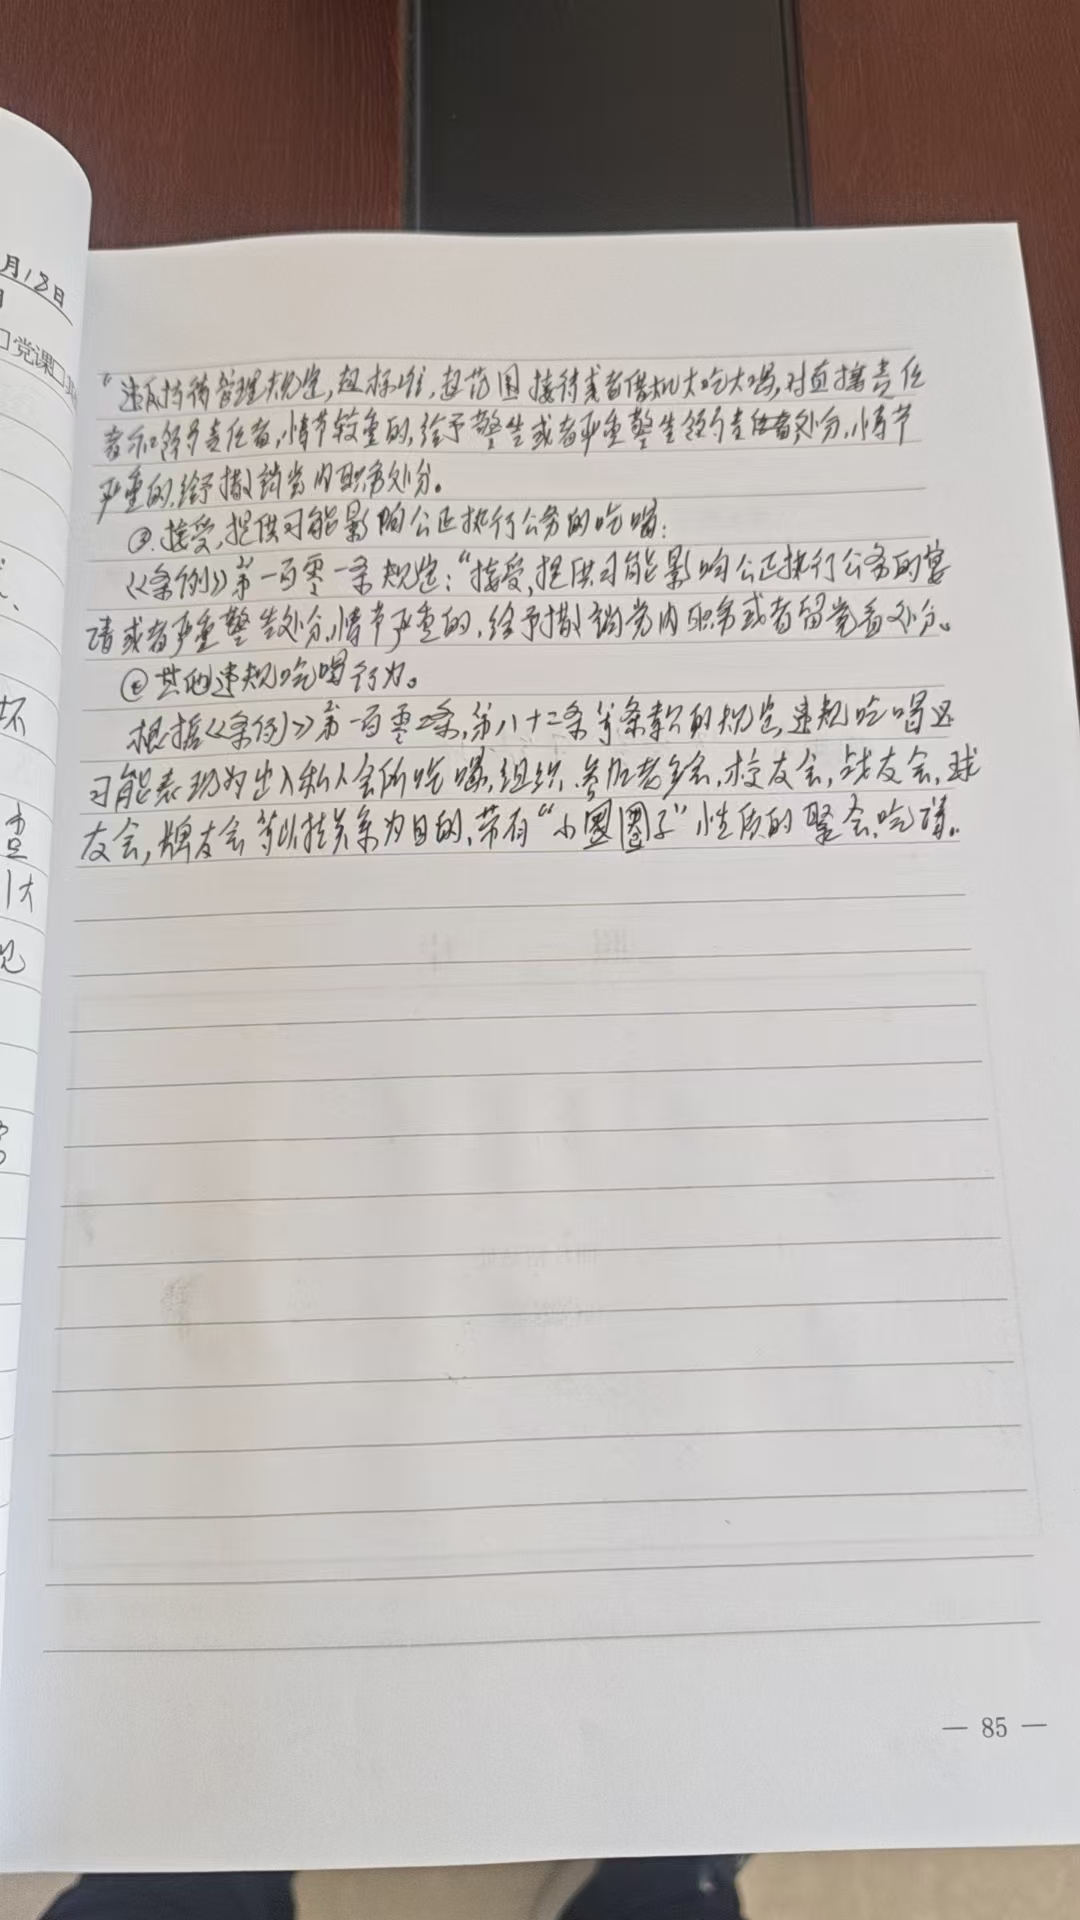 月18日
党课
"违反接待管理规定,超标准,超范围接待或者借机大吃大喝,对直接责任
者和领导责任者,情节较重的,给予警告或者严重警告领导责任者处分,情节
严重的,给予撤销党内职务处分。
③.接受,提供可能影响公正执行公务的吃喝:
《条例》第一百零一条规定:"接受,提供可能影响公正执行公务的宴
请或者严重警告处分,情节严重的,给予撤销党内职务或者留党看处分。
④其他违规吃喝行为。
根据《条例》第一百零2条,第八十二条等条款的规定,违规吃喝还
可能表现为出入私人会所吃喝,组织、参加老乡会,校友会,战友会,球
友会,牌友会等以拉关系为目的,带有"小圈圈子"性质的聚会吃请。
坏
查
见
— 85 —